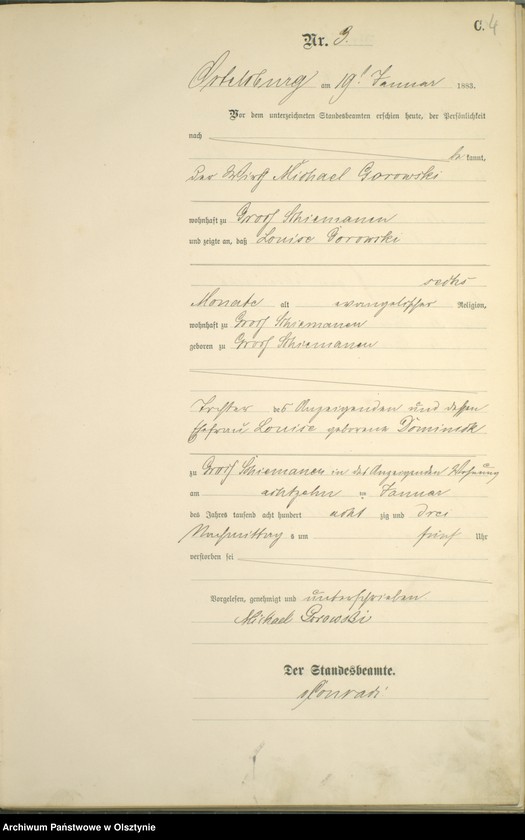 C. 4
Nr. 9.
Ortelsburg am 19t Januar 1883.
Vor dem unterzeichneten Standesbeamten erschien heute, der Persönlichkeit
nach
be kannt,
der Wirth Michael Gorowski
wohnhaft zu Groß Schiemanen
und zeigte an, daß Louise Gorowski
sechs
Monate alt evangelischer Religion,
wohnhaft zu Groß Schiemanen
geboren zu Groß Schiemanen
Tochter des Anzeigenden und dessen
Ehefrau Louise geborene Dominick
zu Groß Schiemanen in des Anzeigenden Wohnung
am achtzehn ten Januar
des Jahres tausend acht hundert acht zig und drei
Nachmittag s um fünf Uhr
verstorben sei
Vorgelesen, genehmigt und unterschrieben
Michael Gorowski
Der Standesbeamte.
Conradi
Archiwum Państwowe w Olsztynie